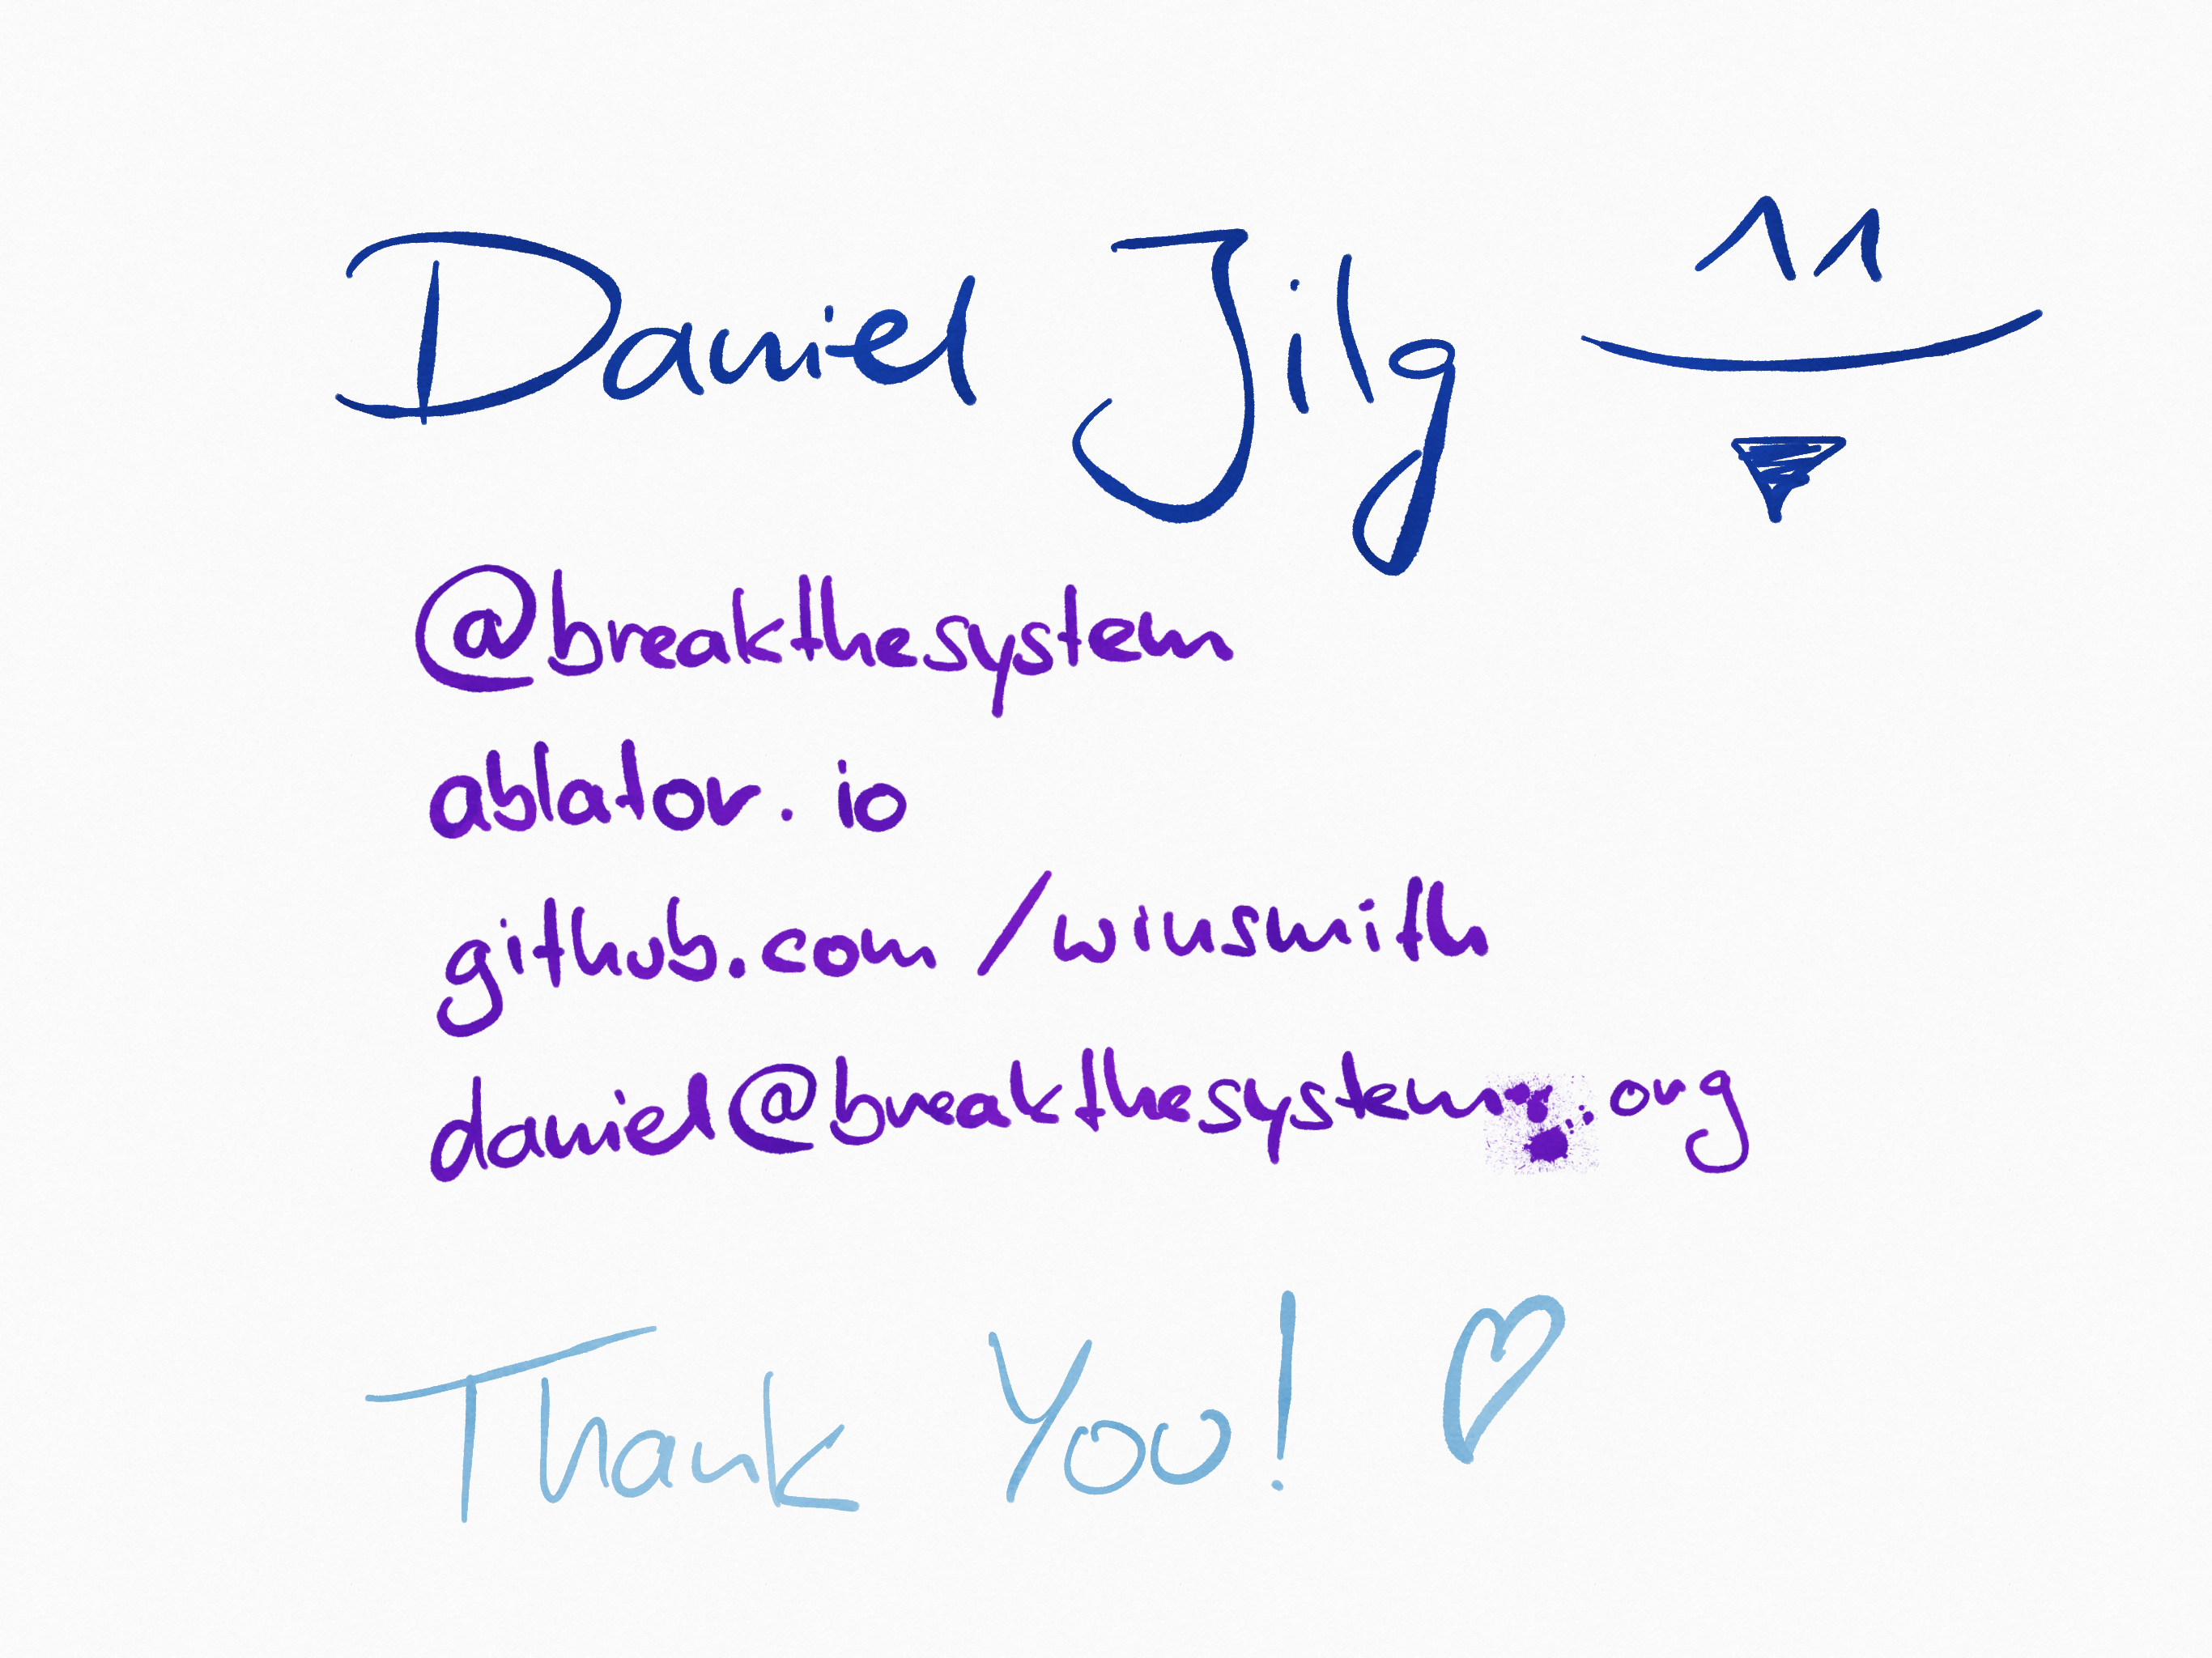 Daniel Jilg
@breakthesystem
ablator.io
github.com/winsmith
daniel@breakthesystem.org
Thank You!